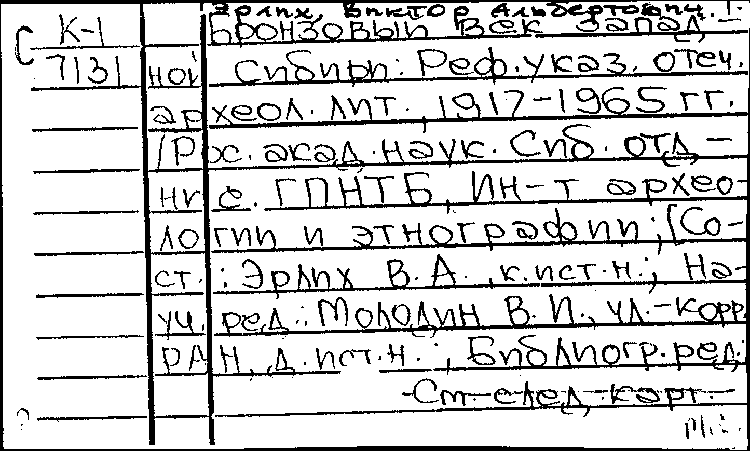 Эрлих, Виктор Альбертович.
С К-1 Бронзовый век Запад-
7131 ной Сибири: Реф. указ. отеч.
археол. лит., 1917-1965 гг.
/Рос. акад. наук. Сиб. отд-
ние. ГПНТБ, Ин-т архео-
логии и этнографии; [Со-
ст.: Эрлих В. А., к.ист.н.; На-
уч. ред.: Молодин В. И., чл.-корр.
РАН, д. ист.н.; Библиогр. ред.:
См след карт